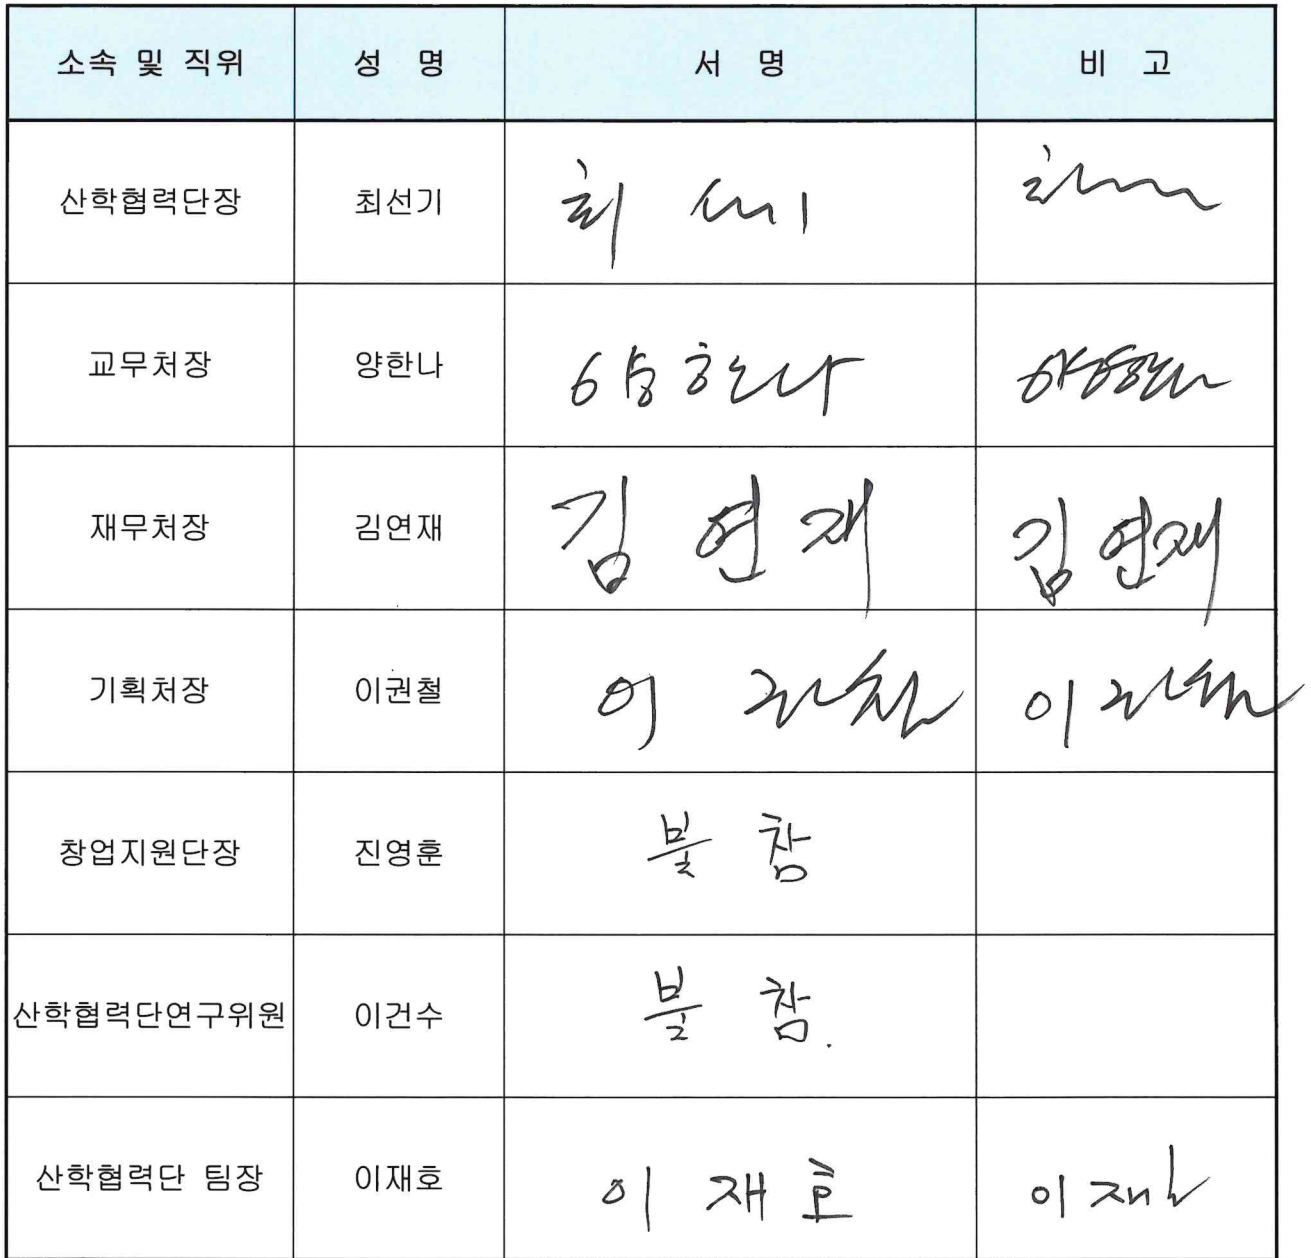 소속 및 직위 성 명 서 명 비 고
산학협력단장 최선기 최
교무처장 양한나 양한나 양한나
재무처장 김연재 김연재 김연재
기획처장 이권철 이권철 이
창업지원단장 진영훈 불참
산학협력단연구위원 이건수 불참.
산학협력단 팀장 이재호 이재호 이재